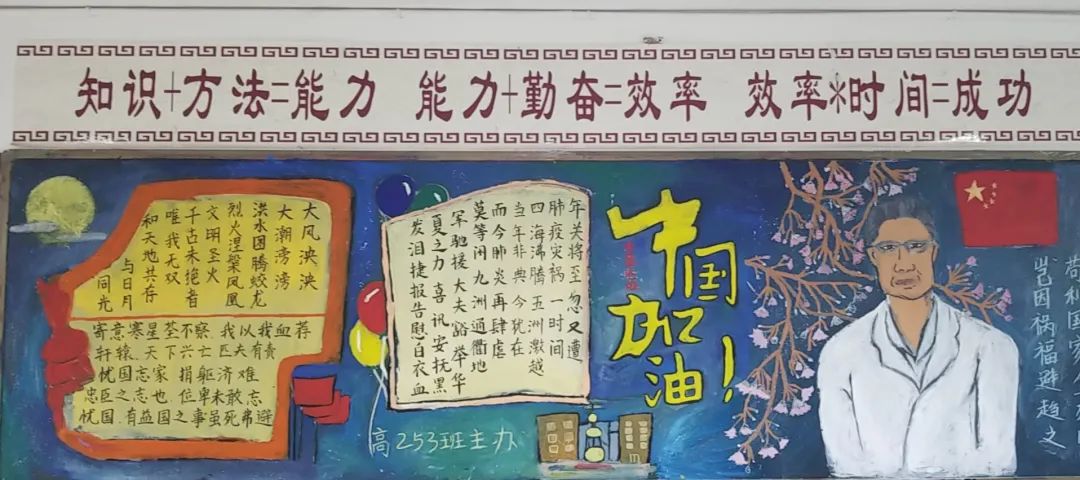 知识+方法=能力 能力+勤奋=效率 效率*时间=成功
大风泱泱
大潮滂滂
洪水图腾蛟龙
烈火涅槃凤凰
文明圣火
千古未绝者
唯我无双
和天地共存
与日月
同光
寄意寒星荃不察 我以我血荐
轩辕.天下兴亡 匹夫有责
忧国忘家 捐躯济难
忠臣之志也 位卑未敢忘
忧国.有益国之事虽死弗避
年关将至忽又遭
肺疫灾祸一时间
四海沸腾五洲激越
当年非典今犹在
而今肺炎再肆虐
莫等闲九洲通衢地
军驰援大夫豁举华
夏之力喜讯安抚黑
发泪捷报告慰白衣血
中国
加油！
高253班主办
苟利国家
岂因祸福避趋之